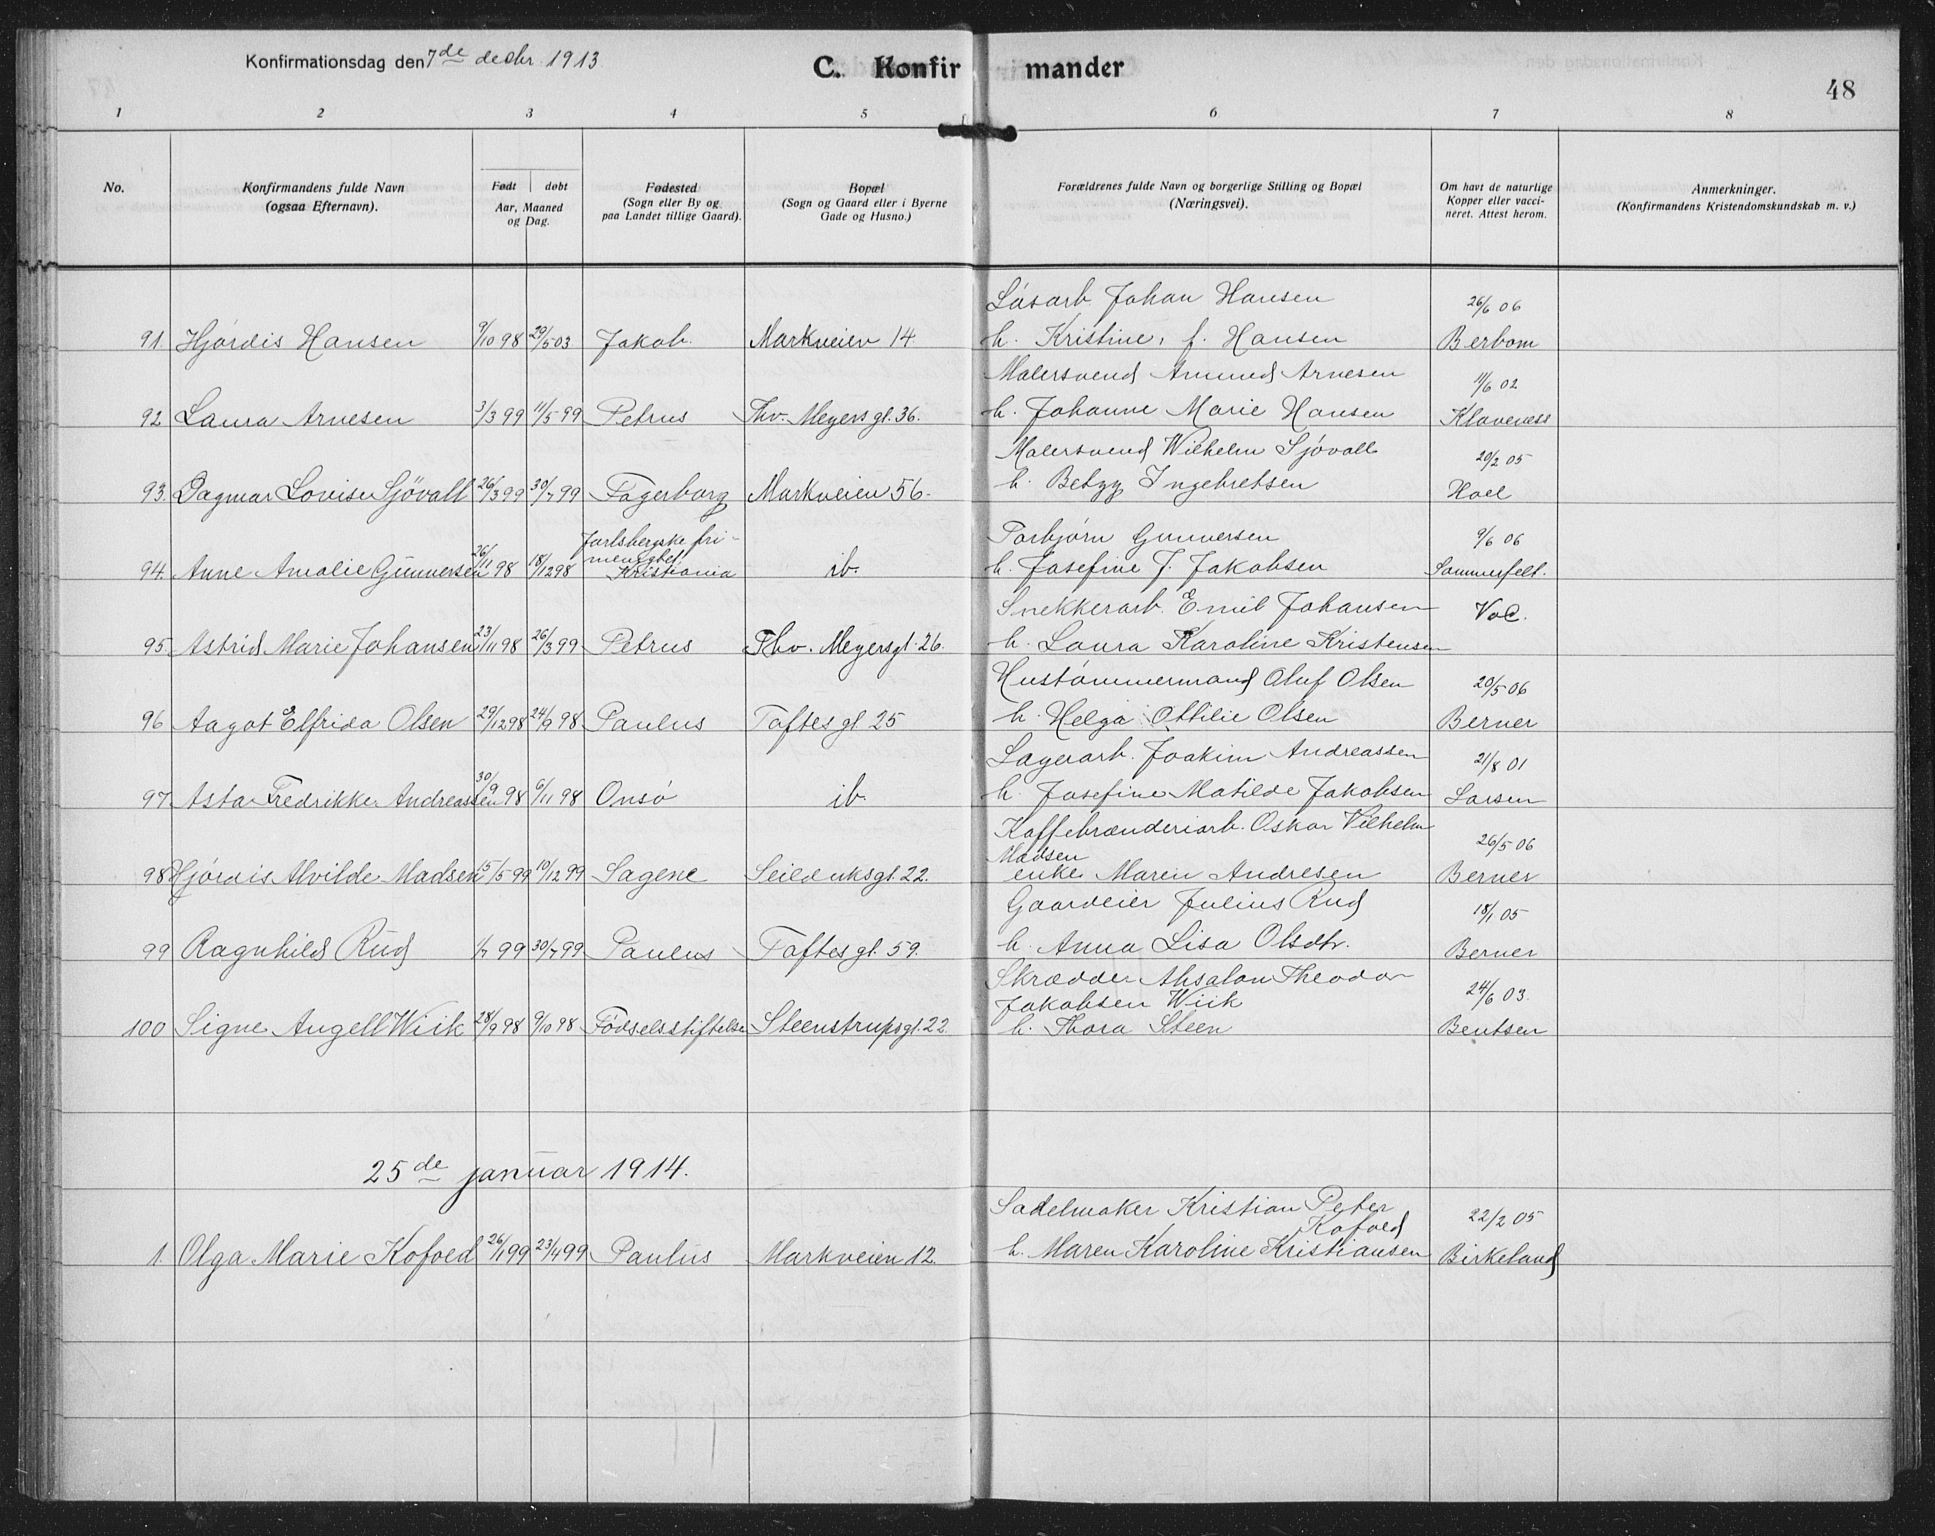 Konfirmationsdag den 7de decbr. 1913
C. Konfirmander
48
1 2 3 4 5 6 7 8
No.
Konfirmandens fulde Navn
(ogsaa Efternavn).
Født | døbt
Aar, Maaned
og Dag.
Fødested
(Sogn eller By og
paa Landet tillige Gaard).
Bopæl
(Sogn og Gaard eller i Byerne
Gade og Husno.)
Forældrenes fulde Navn og borgerlige Stilling og Bopæl
(Næringsvei).
Om havt de naturlige
Kopper eller vacci-
neret. Attest herom.
Anmerkninger.
(Konfirmandens Kristendomskundskab m. v.)
Løsarb. Johan Hansen 26/6 06
91. Hjørdis Hansen 9/10 98 29/5 03 Jakob. Markveien 14 h. Kristine, f. Hansen Berbom
Malersvend Amund Arnesen 11/6 02
92 Laura Arnesen 3/3 99 11/5 99 Petrus Thv. Meyers gl. 36. h. Johanne Marie Hansen Klaveness
Malersvend Wilhelm Sjövall 20/2 05
93. Dagmar Lovise Sjövall 26/3 99 30/7 99 Fagerborg Markveien 56. h. Betzy Ingebretsen Hoel
Jarlsbergske fri-
menighet
Torbjørn Gunnersen 9/6 06
94. Anne Amalie Gunnersen 26/11 98 18/12 98 Kristiania ib. h. Josefine J. Jakobsen Sommerfelt.
Snekkerarb. Emil Johansen Vac.
95. Astrid Marie Johansen 23/11 98 26/3 99 Petrus Thv. Meyersgt. 26. h. Laura Karoline Kristensen
Hustømmermand Oluf Olsen 20/5 06
96 Aagot Elfrida Olsen 29/12 98 24/9 98 Paulus Toftes gl 25 h. Helga Ottilie Olsen Berner
Lagerarb. Joakim Andreassen 21/8 01
97. Asta Fredrikke Andreassen 30/9 98 6/11 98 Onsø ib. h. Josefine Matilde Jakobsen Larsen
Kaffebrænderiarb. Oskar Vilhelm
Madsen 26/5 06
98 Hjørdis Alvilde Madsen 15/5 99 10/12 99 Sagene Seilduksgt. 22. enke Maren Andresen Berner
Gaardeier Julius Rud 18/1 05
99 Ragnhild Rud 1/7 99 30/7 99 Paulus Toftes gl. 59. h. Anna Lisa Olsdtr. Berner
Skrædder Absalon Theodor
Jakobsen Wiik 24/6 03.
100 Signe Angell Wiik 28/9 98 9/10 98 Fødselsstiftelsen Steenstrupsgt. 22 h. Thora Steen Bentsen
25de januar 1914.
Sadelmaker Kristian Peter
Kofoed 22/2 05
1. Olga Marie Kofoed 26/1 99 23/4 99 Paulus Markveien 12. h. Maren Karoline Kristiansen Birkeland